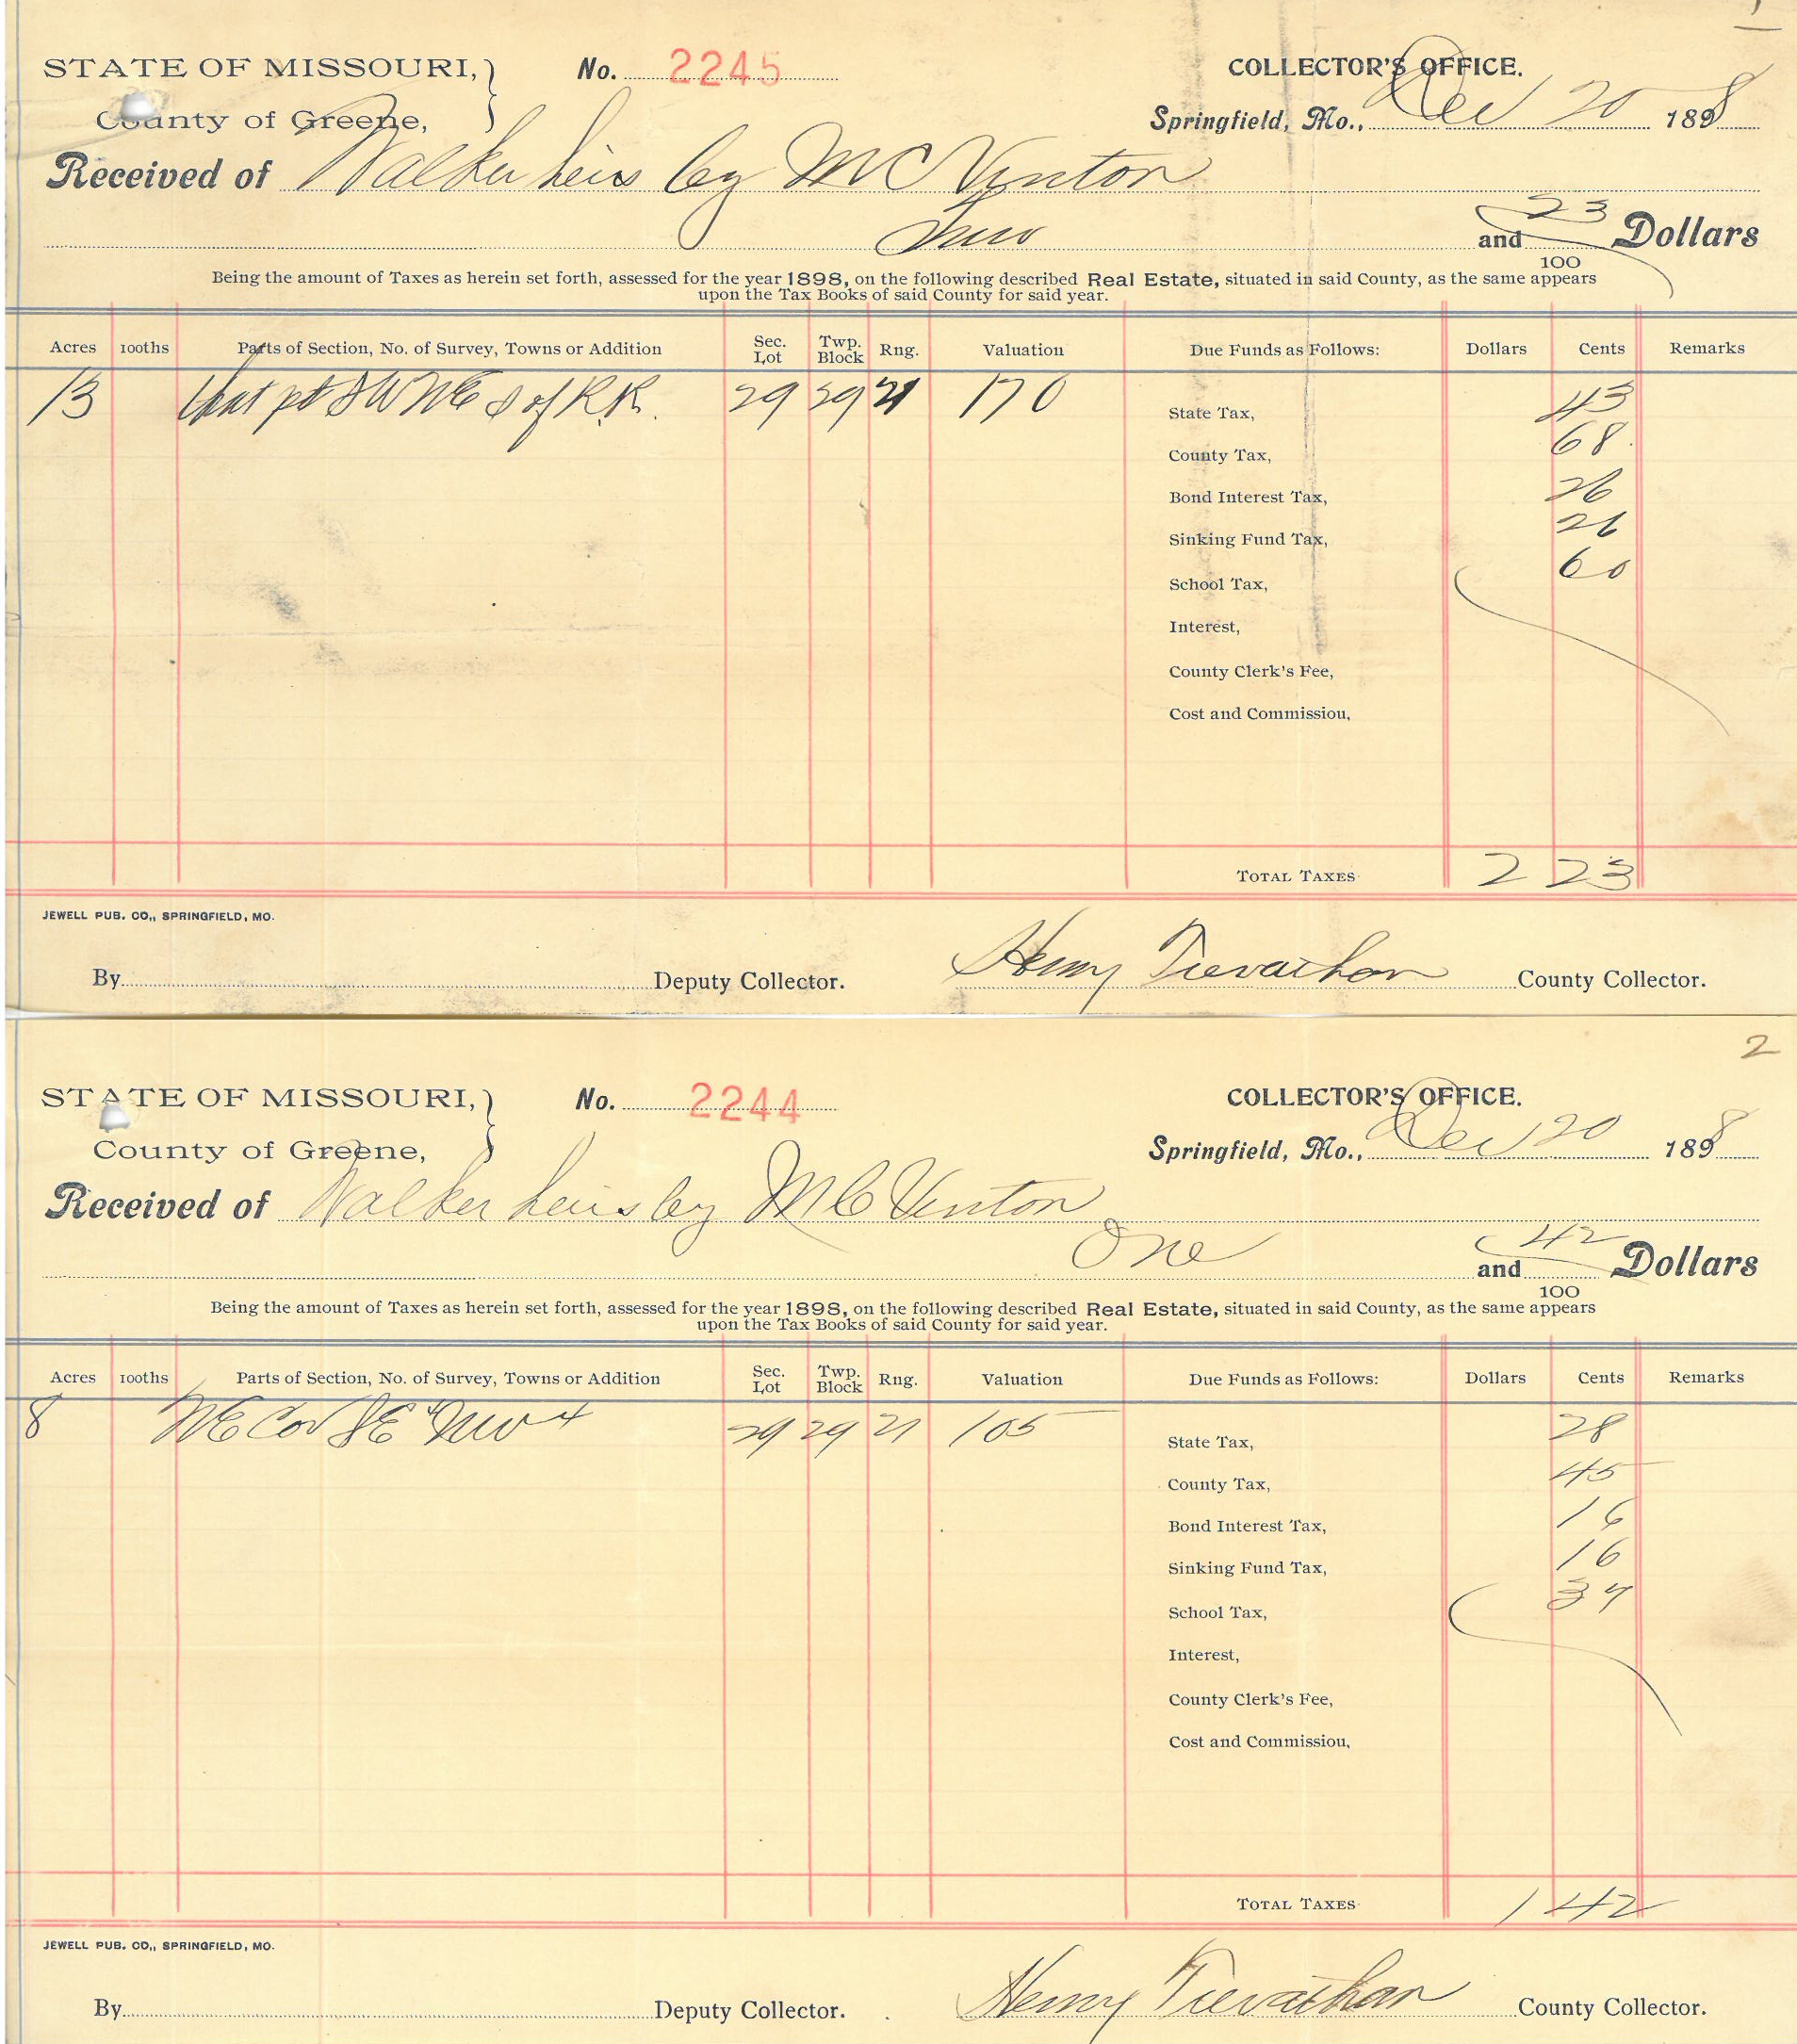 1
STATE OF MISSOURI, } No. 2245 COLLECTOR'S OFFICE.
County of Greene, Springfield, Mo., Dec 20 1898
Received of Walker heirs by M C Vinton
Two and 23/100 Dollars
Being the amount of Taxes as herein set forth, assessed for the year 1898, on the following described Real Estate, situated in said County, as the same appears
upon the Tax Books of said County for said year.
Acres 100ths Parts of Section, No. of Survey, Towns or Addition Sec. Lot Twp. Block Rng. Valuation Due Funds as Follows: Dollars Cents Remarks
13 that pt SW NE S of R.R. 29 29 21 170 State Tax, 43
County Tax, 68
Bond Interest Tax, 26
Sinking Fund Tax, 26
School Tax, 60
Interest,
County Clerk's Fee,
Cost and Commissiou,
TOTAL TAXES 2 23
JEWELL PUB. CO., SPRINGFIELD, MO.
By Deputy Collector. Henry Trevathan County Collector.
2
STATE OF MISSOURI, } No. 2244 COLLECTOR'S OFFICE.
County of Greene, Springfield, Mo., Dec 20 1898
Received of Walker heirs by M C Vinton
One and 42/100 Dollars
Being the amount of Taxes as herein set forth, assessed for the year 1898, on the following described Real Estate, situated in said County, as the same appears
upon the Tax Books of said County for said year.
Acres 100ths Parts of Section, No. of Survey, Towns or Addition Sec. Lot Twp. Block Rng. Valuation Due Funds as Follows: Dollars Cents Remarks
8 NE Cor SE NW 29 29 21 105 State Tax, 28
County Tax, 45
Bond Interest Tax, 16
Sinking Fund Tax, 16
School Tax, 37
Interest,
County Clerk's Fee,
Cost and Commissiou,
TOTAL TAXES 1 42
JEWELL PUB. CO., SPRINGFIELD, MO.
By Deputy Collector. Henry Trevathan County Collector.